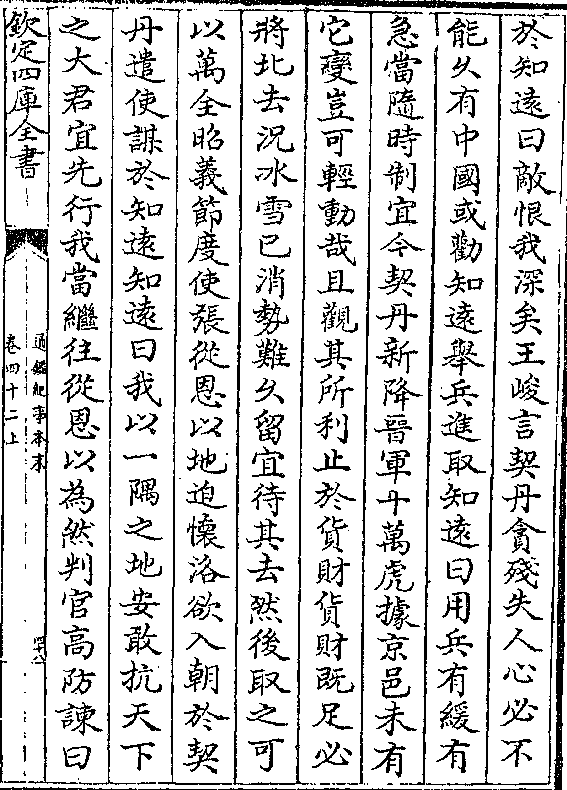 於知遠曰敵恨我深矣王峻言契丹貪殘失人心必不
能久有中國或勸知遠舉兵進取知遠曰用兵有緩有
急當隨時制宜今契丹新降晉軍十萬虎據京邑未有
它變豈可輕動哉且觀其所利止於貨財貨財既足必
將北去況冰雪已消勢難久留宜待其去然後取之可
以萬全昭義節度使張從恩以地迫懷洛欲入朝於契
丹遣使謀於知遠知遠曰我以一隅之地安敢抗天下
之大君宜先行我當繼往從恩以為然判官高防諫曰
欽定四庫全書
通鑑紀事本末
卷四十二上